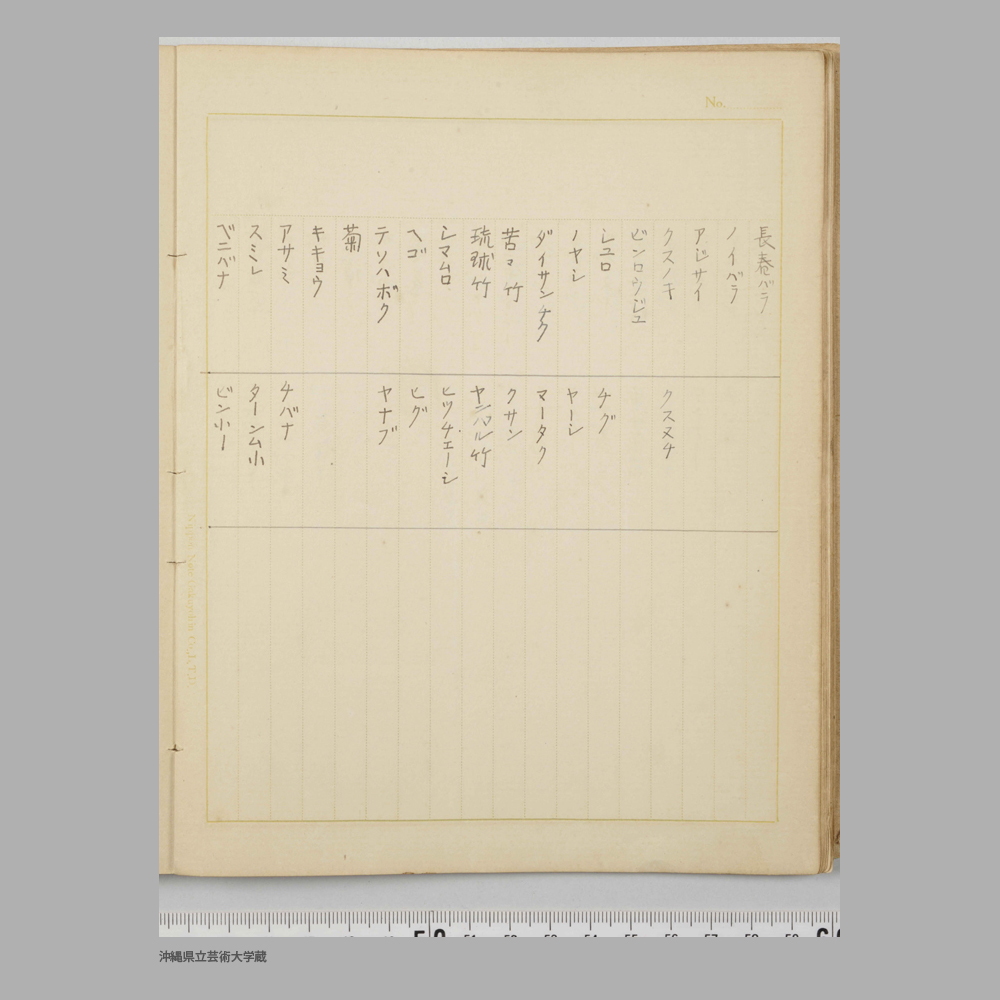 No.
長春バラ
ノイバラ
アジサイ
クスノキ
クスヌチ
ビンロウジュ
シュロ
チグ
ノヤシ
ヤーシ
ダイサンチク
マータク
苦々竹
クサン
琉球竹
ヤンバル竹
シマムロ
ヒツチェーシ
ヘゴ
ヒグ
テソハボク
ヤナブ
菊
キキョウ
アサミ
チバナ
スミレ
ターンム小
ベニバナ
ビン小ー
沖縄県立芸術大学蔵